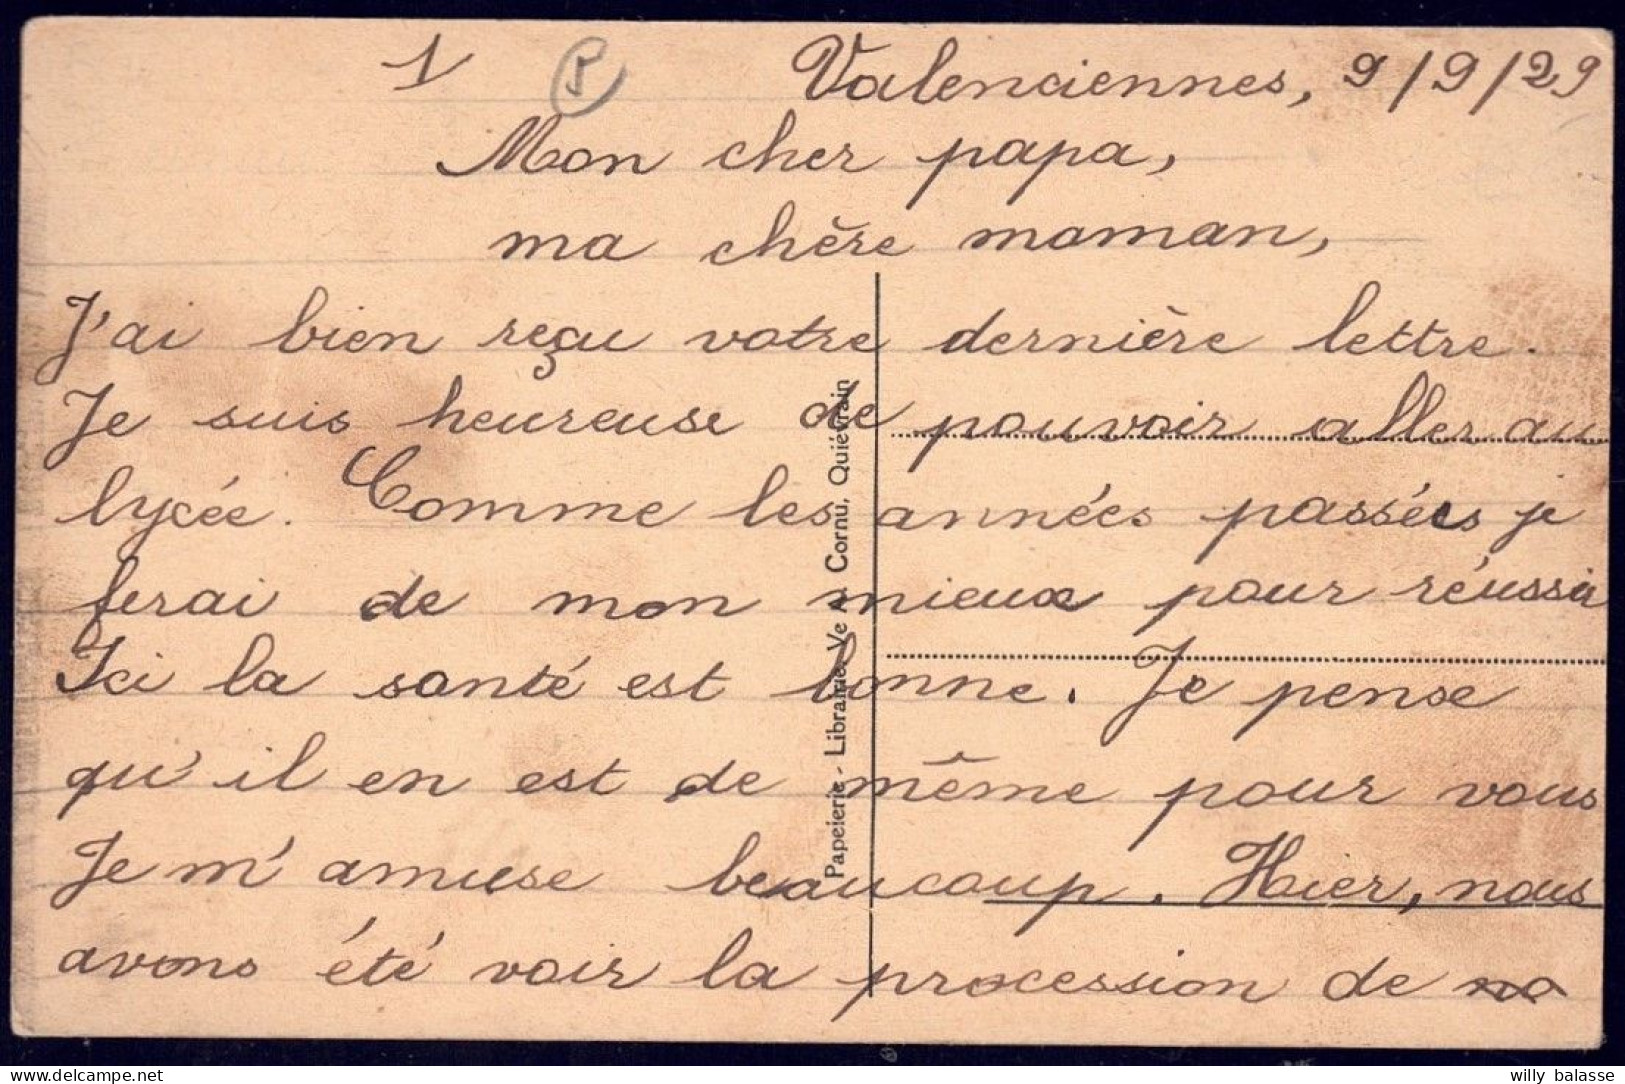 1 Valenciennes, 9/9/29
Mon cher papa,
ma chère maman,
J'ai bien reçu votre dernière lettre.
Je suis heureuse de pouvoir aller au
lycée. Comme les années passées je
ferai de mon mieux pour réussir
Ici la santé est bonne. Je pense
qu'il en est de même pour vous
Je m'amuse beaucoup. Hier, nous
avons été voir la procession de
Papeierie - Librairie Ve Cornu, Quiévrain
willy balasse